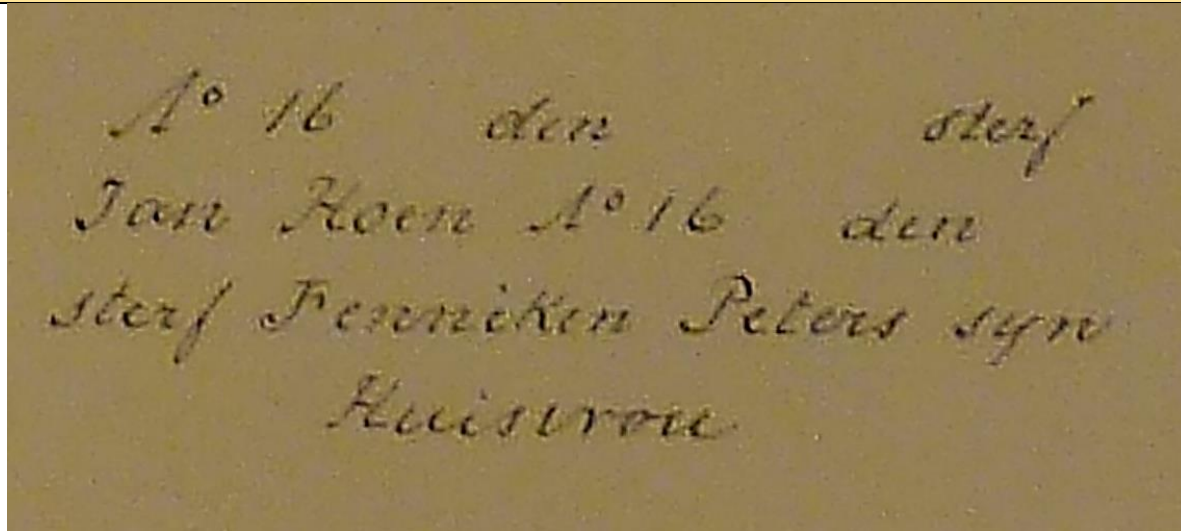 Aº 16 den sterf
Jan Koen Aº 16 den
sterf Fenniken Peters syn
Huisvrou